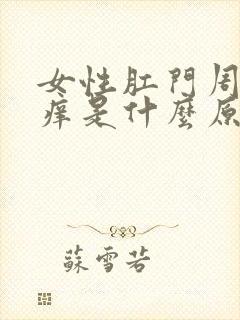 女性肛門周
痒是什麼原
蘇雪若